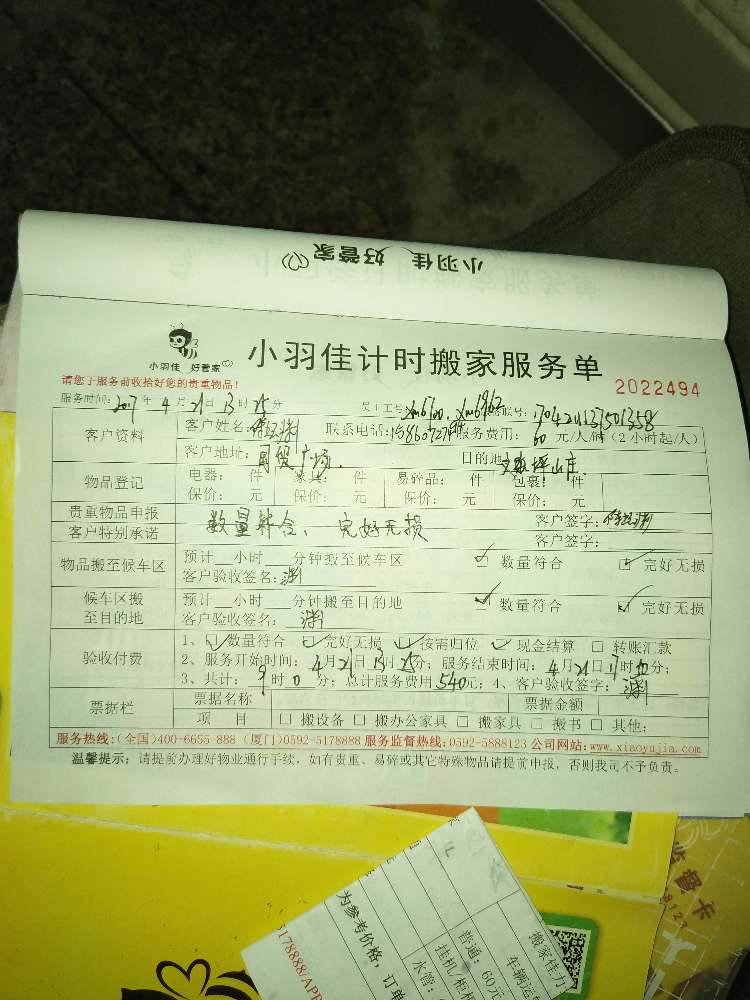 小羽佳 好管家
小羽佳 好管家
小羽佳计时搬家服务单
2022494
请您于服务前收拾好您的贵重物品！
服务时间：2017年4月21日13时25分 员工工号：xm6700、xm6962
客户资料 客户姓名： 联系电话： 服务费用：60元/人/时（2小时起/人）
客户地址：国贸广场 目的地：
物品登记 电器： 件 家具： 件 易碎品： 件 包裹： 件
保价： 元 保价： 元 保价： 元 保价： 元
贵重物品申报 客户签字：
客户特别承诺 数量符合、完好无损 客户签字：
物品搬至候车区 预计 小时 分钟搬至候车区 数量符合 完好无损
客户验收签名：渊
候车区搬至目的地 预计 小时 分钟搬至目的地 数量符合 完好无损
客户验收签名：渊
验收付费 1、数量符合 完好无损 按需归位 现金结算 转账汇款
2、服务开始时间：4月21日13时25分；服务结束时间：4月21日17时 分；
3、共计：9时0分；总计服务费用540元；4、客户验收签字：渊
票据栏 票据名称 票据金额
项 目 搬设备 搬办公家具 搬家具 搬书 其他：
服务热线：(全国)400-6655 888 (厦门)0592-5178888 服务监督热线：0592-5888123 公司网站：www.xiaoyujia.com
温馨提示：请提前办理好物业通行手续，如有贵重、易碎或其它特殊物品请提前申报，否则我司不予负责。
监督卡
搬家佳力
车辆运
普通：60元
挂机/柜机
水管：
为参考价格，订单
5178888/APP